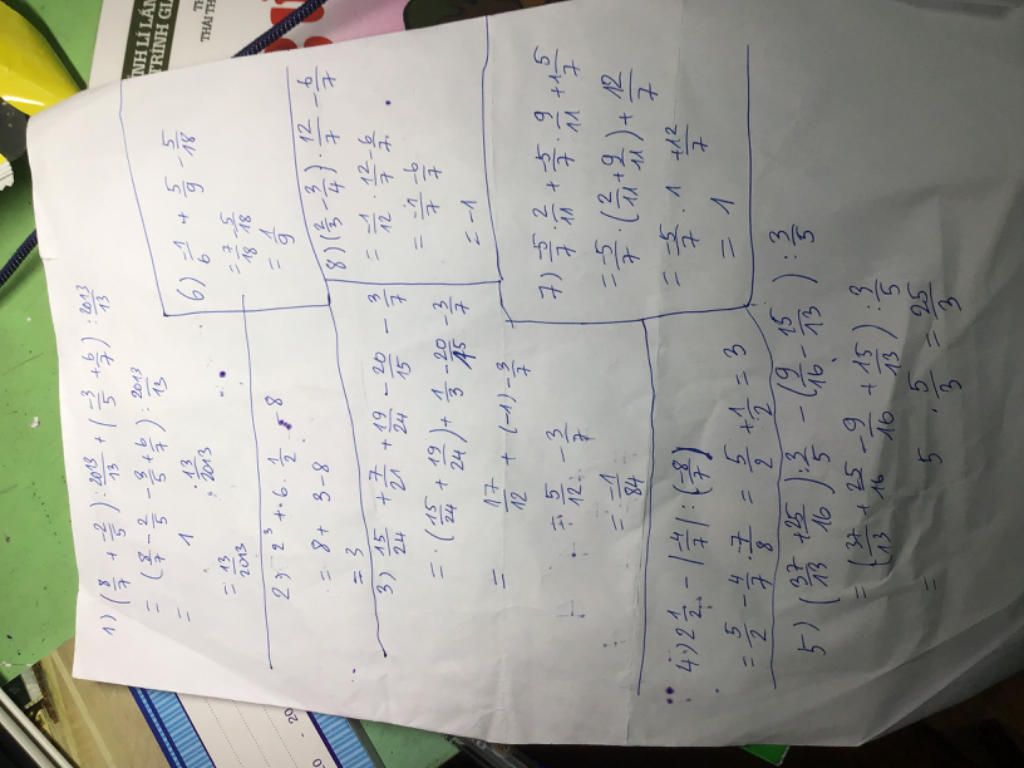 1) (8/7 + -2/5) : 2013/13 + (-3/5 + 6/7) : 2013/13
= (8/7 - 2/5 - 3/5 + 6/7) : 2013/13
= 1 . 13/2013
= 13/2013
2) 2³ + 6 . 1/2 - 8
= 8 + 3 - 8
= 3
3) 15/24 + 7/21 + 19/24 - 20/15 - 3/7
= (15/24 + 19/24) + 1/3 - 20/15 - 3/7
= 17/12 + (-1) - 3/7
= 5/12 - 3/7
= -1/84
4) 2 1/2 - |-4/7| : (-8/7)
= 5/2 - 4/7 . -7/8 = 5/2 + 1/2 = 3
5) (37/13 + 25/16) : 3/5 - (9/16 - 15/13) : 3/5
= (37/13 + 25/16 - 9/16 + 15/13) : 3/5
= 5 . 5/3 = 25/3
6) -1/6 + 5/9 - 5/18
= 7/18 - 5/18
= 1/9
8) (2/3 - 3/4) . 12/7 - 6/7
= -1/12 . 12/7 - 6/7
= -1/7 - 6/7
= -1
7) -5/7 . 2/11 + -5/7 . 9/11 + 1 5/7
= -5/7 . (2/11 + 9/11) + 12/7
= -5/7 . 1 + 12/7
= 1
NH LÍ LÂM
TRÌNH GIẢ